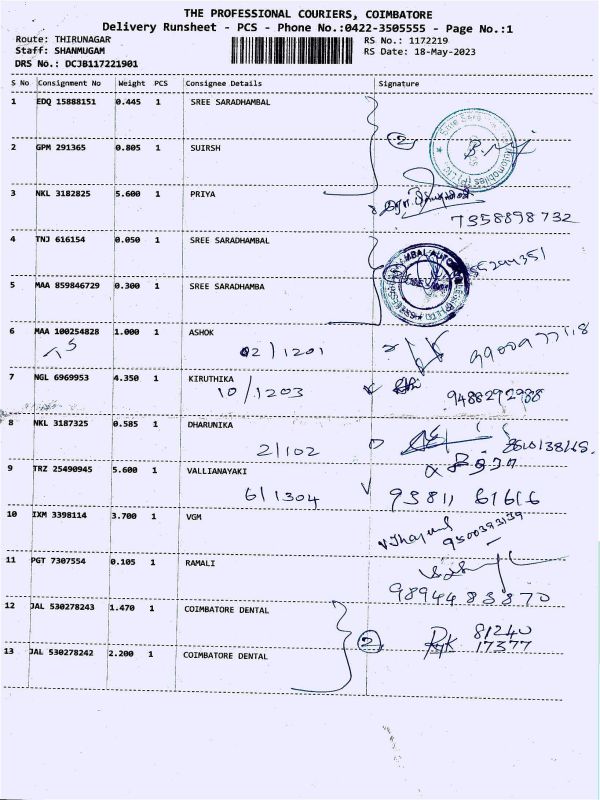 THE PROFESSIONAL COURIERS, COIMBATORE
Delivery Runsheet - PCS - Phone No.:0422-3505555 - Page No.:1
Route: THIRUNAGAR RS No.: 1172219
Staff: SHANMUGAM RS Date: 18-May-2023
DRS No.: DCJB117221901
S No Consignment No Weight PCS Consignee Details Signature
1 EDQ 15888151 0.445 1 SREE SARADHAMBAL
2
2 GPM 291365 0.805 1 SUIRSH
3 NKL 3182825 5.600 1 PRIYA
7358898732
4 TNJ 616154 0.050 1 SREE SARADHAMBAL
5 MAA 859846729 0.300 1 SREE SARADHAMBA
6 MAA 100254828 1.000 1 ASHOK
02/1201
7 NGL 6969953 4.350 1 KIRUTHIKA
10/1203 9488292988
8 NKL 3187325 0.585 1 DHARUNIKA
2/102
9 TRZ 25490945 5.600 1 VALLIANAYAKI
6/1304 93811 61616
10 IXM 3398114 3.700 1 VGM
9500393139
11 PGT 7307554 0.105 1 RAMALI
9894483870
12 JAL 530278243 1.470 1 COIMBATORE DENTAL
2 81240
17377
13 JAL 530278242 2.200 1 COIMBATORE DENTAL